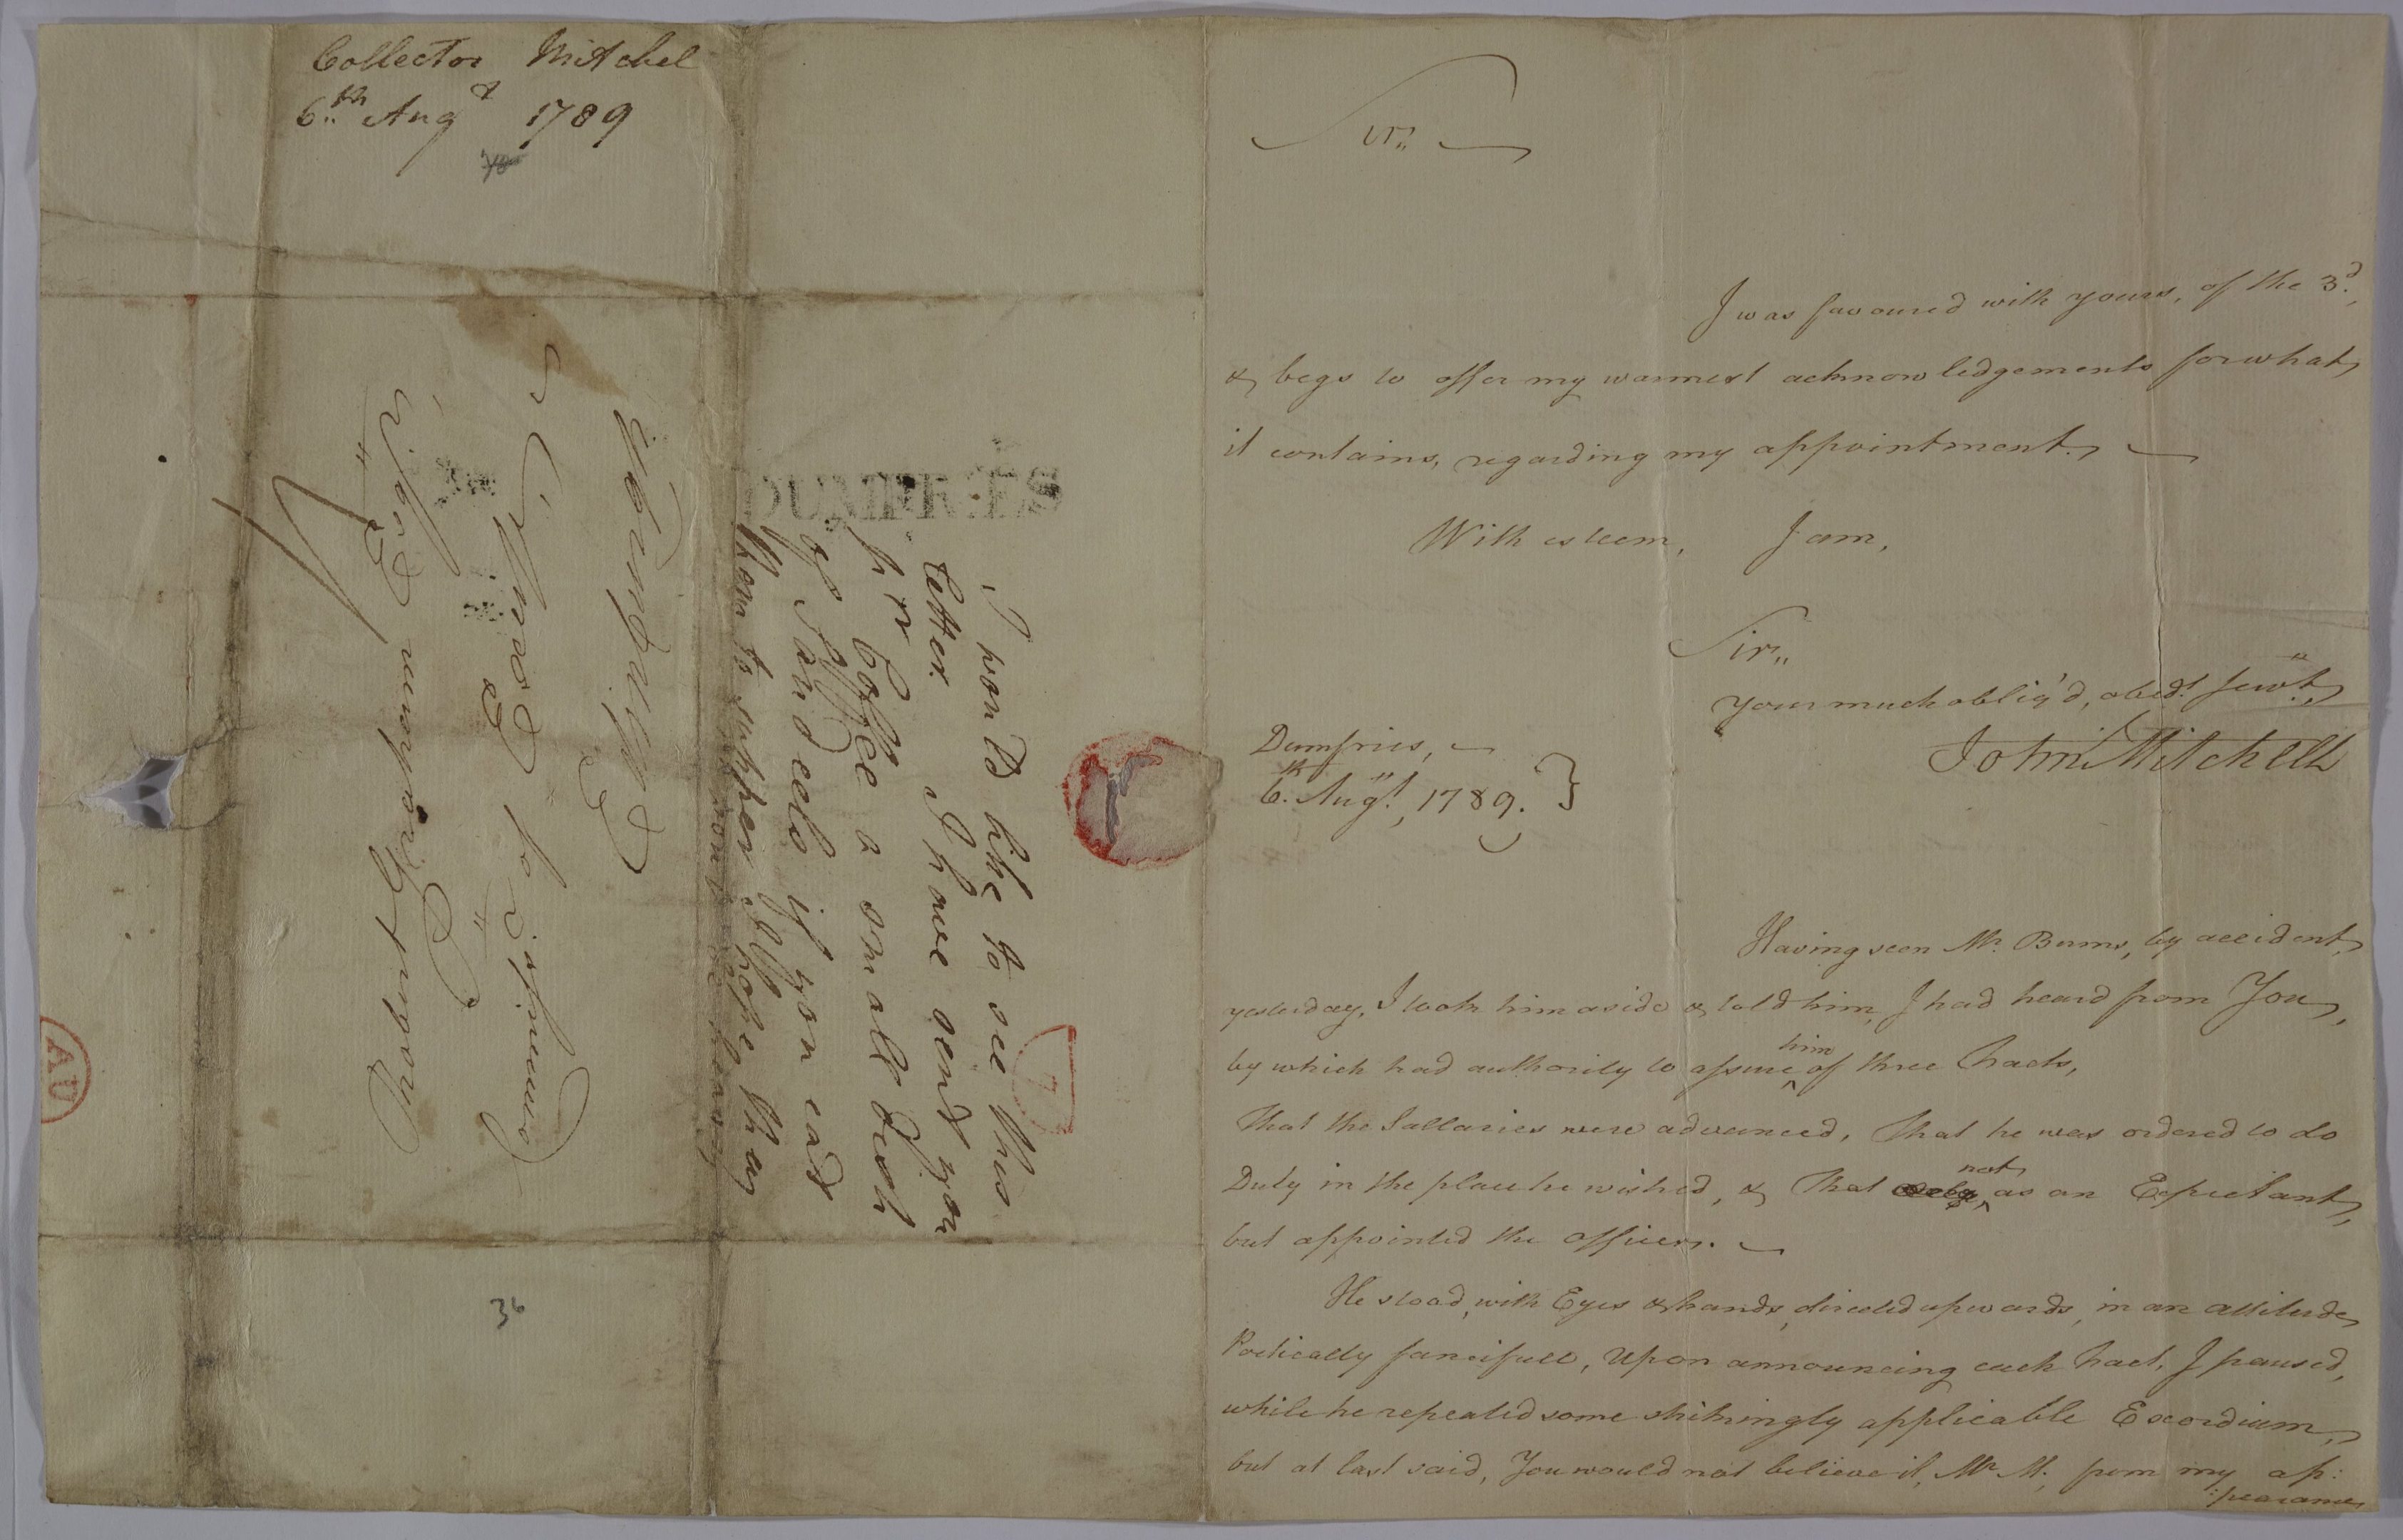 Collector Mitchel
6th Augt 1789
DUMFRIES
I wou'd like to see this
letter. I have sent you
pr Coffee a small dish
of Sand eels if you eat
them to supper I hope they
Edinburgh
Robert Graham Esqr
36
AU
Sir,,
I was favoured with yours, of the 3d.,
& begs to offer my warmest acknowledgements for what
it contains, regarding my appointment.
With esteem, I am,
Sir,,
your much oblig'd, obedt. servt.,
John Mitchell
Dumfries,
6th. Augt., 1789.
Having seen Mr. Burns, by accident,
yesterday, I took him aside & told him, I had heard from You,
by which had authority to assure him of three Facts,
That the Sallaries were advanced, That he was ordered to do
Duty in the place he wished, & That not as an Expectant,
but appointed the officer.
He stood, with Eyes & hands, directed upwards, in an attitude
Poetically fancifull, Upon announcing each Fact, I paused,
while he repeated some strikingly applicable Exordium,
but at last said, You would not believe it, Mr. M., from my ap:
:pearance,